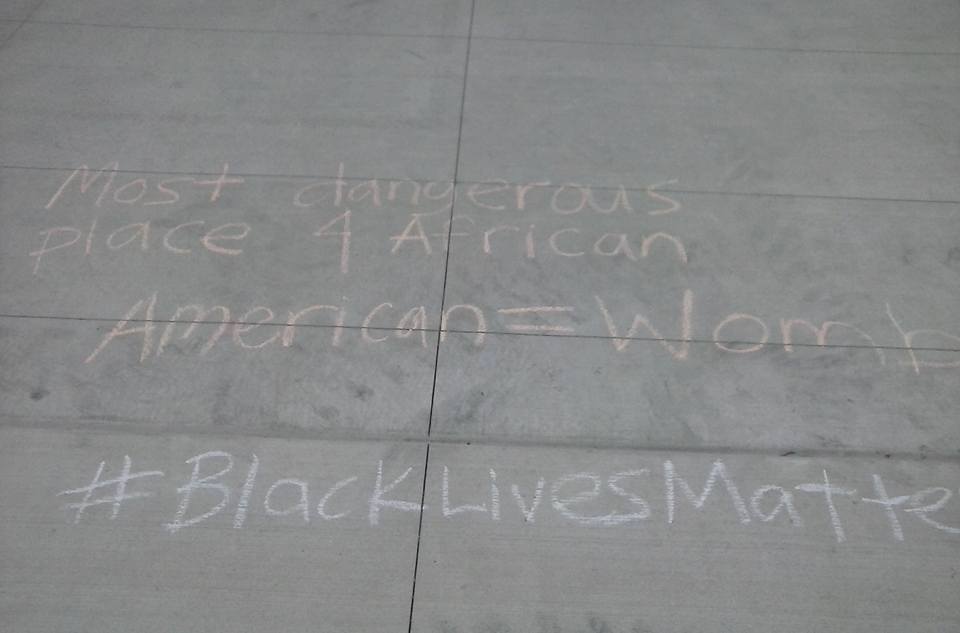 Most dangerous
place 4 African
American = Womb
#BlackLivesMatte